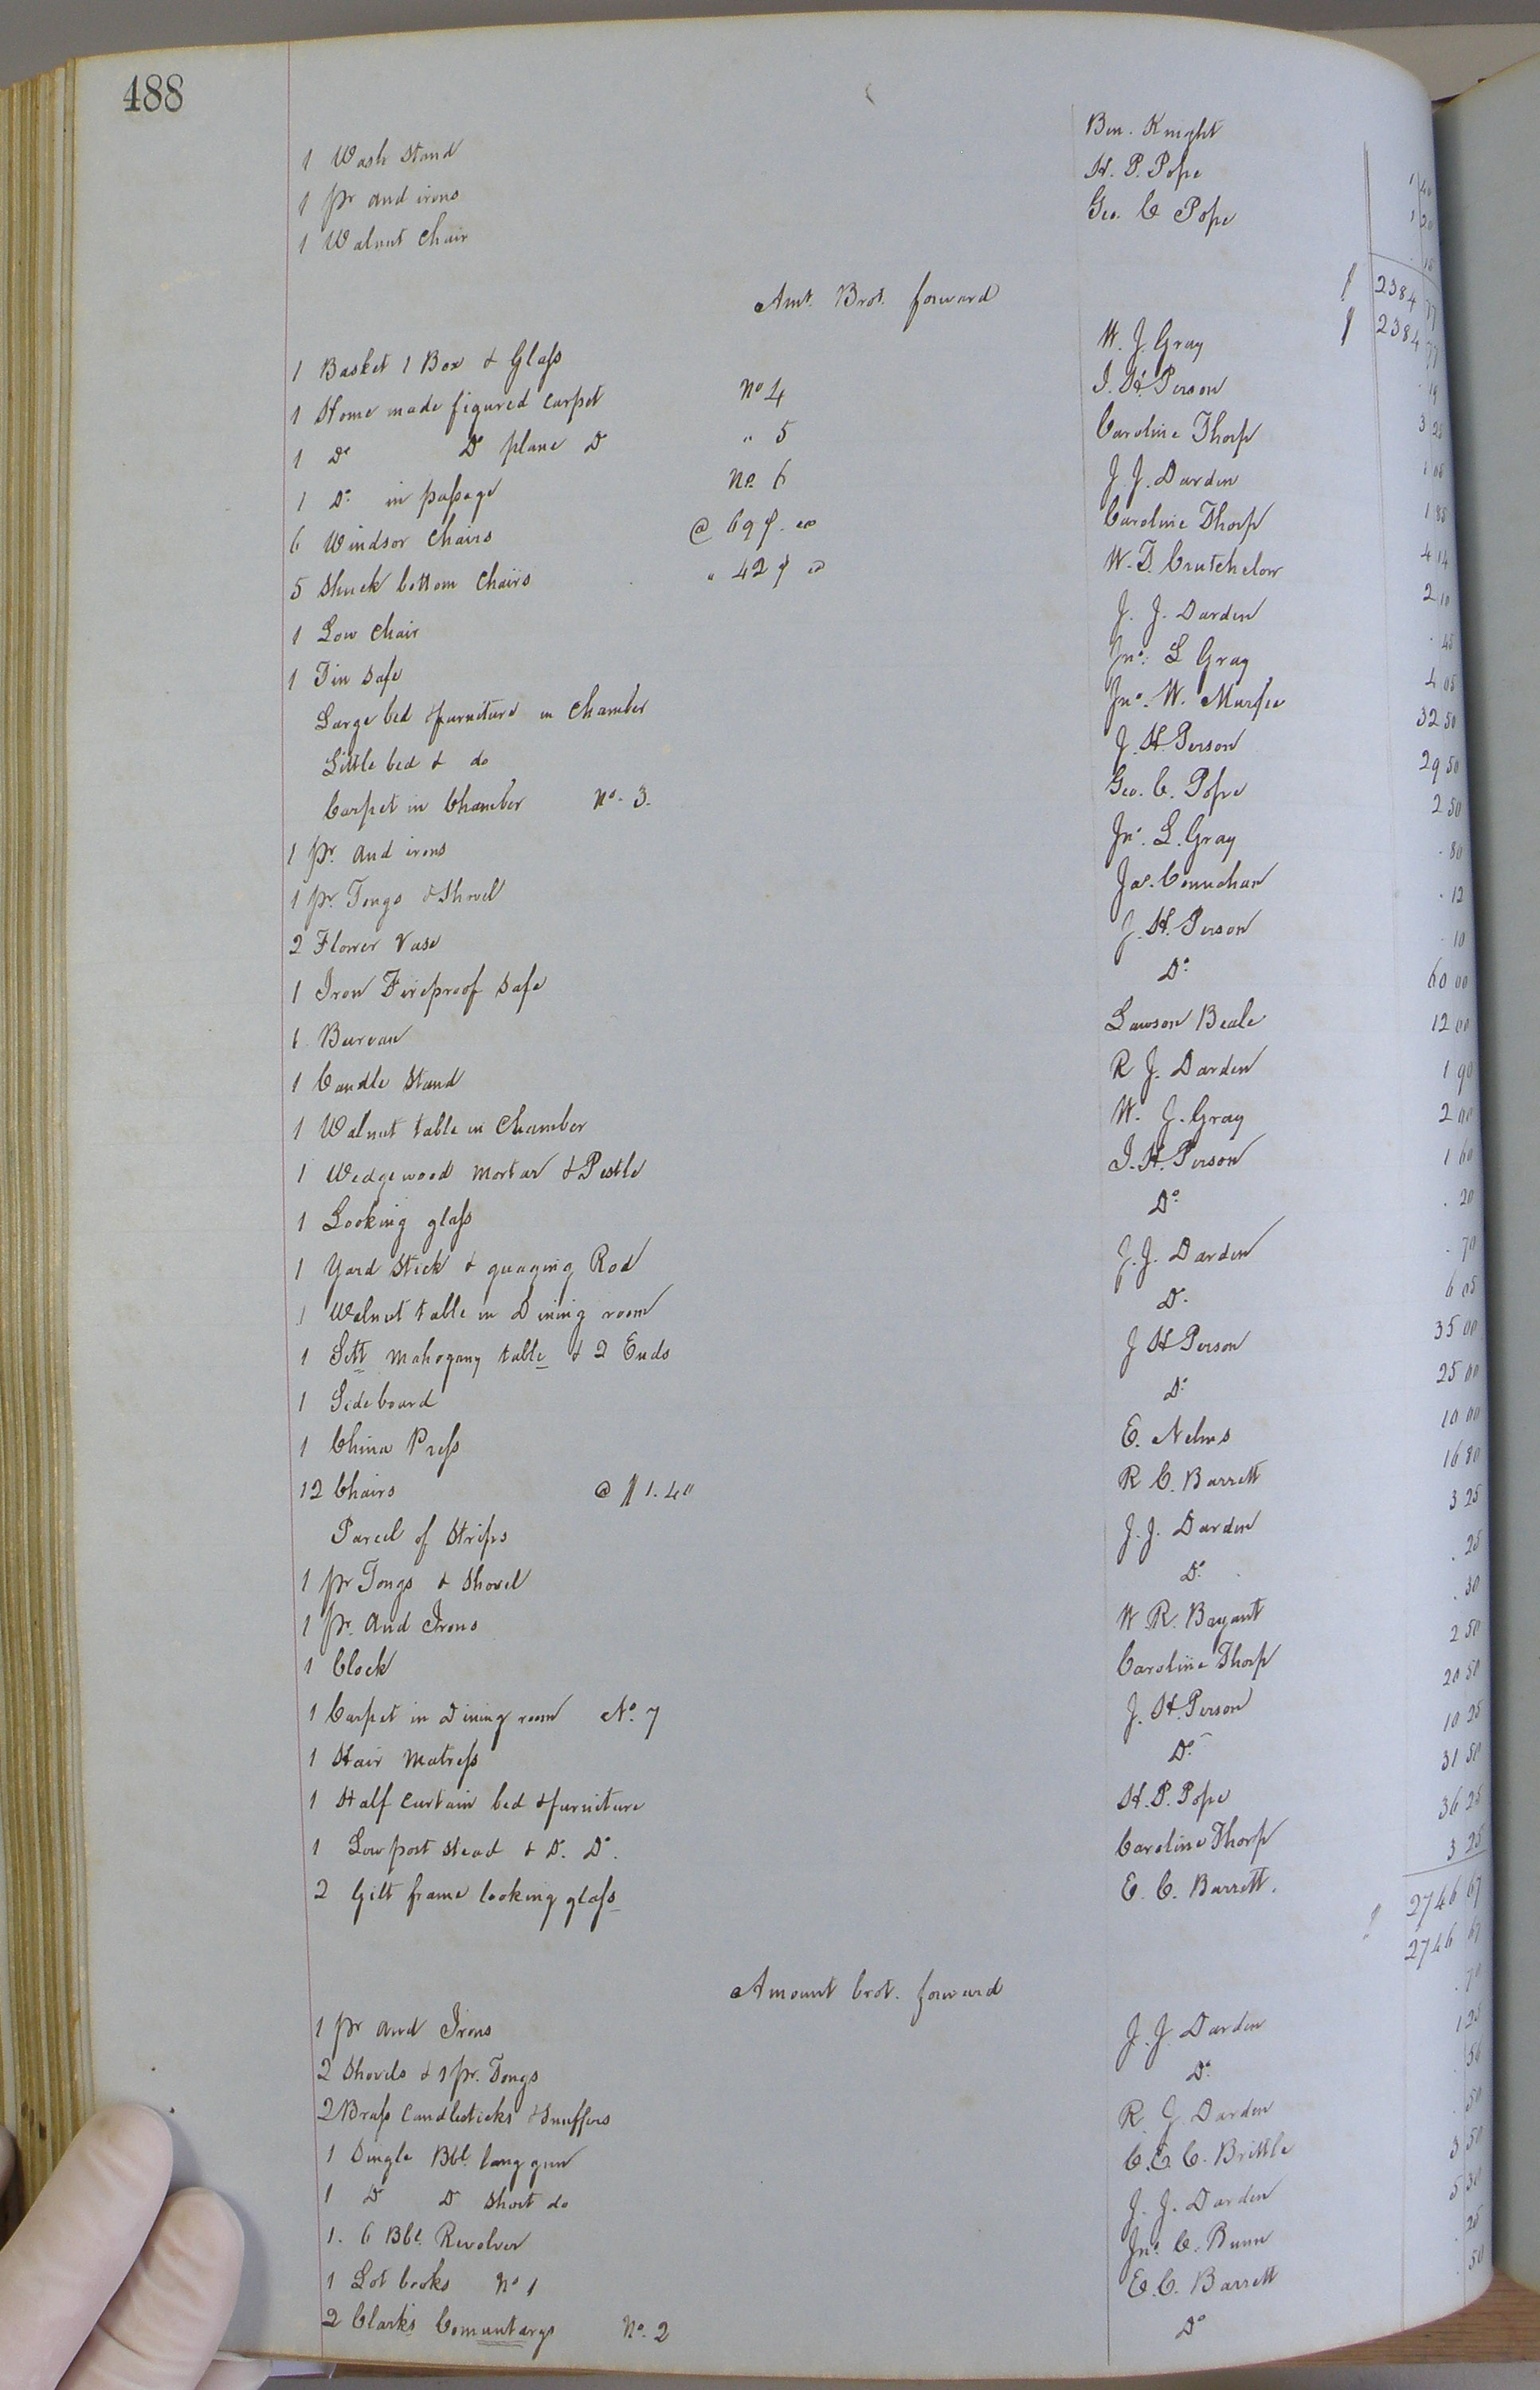 488
1 Wash Stand Ben. Knight 1 40
1 pr and irons H. P. Pope 1 20
1 Walnut Chair Geo. C Pope . 15
$ 2384 77
Amt. Brot. forward $ 2384 77
1 Basket 1 Box & Glass W. J. Gray . 19
1 Home made figured Carpet No 4 J. H. Person 3 25
1 Do Do plane Do " 5 Caroline Thorp 1 05
1 Do in passage No 6 J. J. Darden 1 85
6 Windsor Chairs @ 69 ¢ ea Caroline Thorp 4 14
5 Shuck bottom Chairs " 42 ¢ ea W. T. Crutchelow 2 10
1 Low Chair J. J. Darden . 45
1 Tin Safe Jno. L Gray 4 05
Large bed & furniture in Chamber Jno. W. Murfee 32 50
Little bed & do J. H. Person 29 50
Carpet in Chamber No. 3. Geo. C. Pope 2 50
1 pr. and irons Jno. L. Gray . 80
1 pr. Tongs & Shovel Jas. . 12
2 Flower Vase J. H. Person . 10
1 Iron Fireproof Safe Do 60 00
1 Bureau Lawson Beale 12 00
1 Candle Stand R J. Darden 1 90
1 Walnut table in Chamber W. J. Gray 2 00
1 Wedgewood Mortar & Pestle J. H. Person 1 60
1 Looking glass Do . 20
1 Yard Stick & guaging Rod J. J. Darden . 70
1 Walnut table in Dining room Do 6 05
1 Sett Mahogany table & 2 Ends J H Person 35 00
1 Sideboard Do 25 00
1 China Press E. Nelms 10 00
12 Chairs @ $1.40 R C. Barrett 16 80
Parcel of Strips J. J. Darden 3 25
1 pr Tongs & Shovel Do . 25
1 pr. And Irons W. R. Bryant . 30
1 Clock Caroline Thorp 2 50
1 Carpet in Dining room No. 7 J. H. Person 20 50
1 Hair Matress Do 10 25
1 Half Curtain bed & furniture H. P. Pope 31 50
1 Low post Stead & D. Do. Caroline Thorp 36 25
2 Gilt frame looking glass E. C. Barrett. 3 25
2746 67
Amount brot. forward $ 2746 67
1 pr and Irons J. J. Darden . 70
2 Shovels & 1 pr. Tongs Do 1 25
2 Brass Candlesticks & Snuffers R J. Darden . 56
1 Single Bbl. long gun C. E. C. Brittle . 50
1 Do Do Short do J. J. Darden 3 50
1. 6 Bbl. Revolver Jno. C. Bunn 5 30
1 Lot books No 1 E. C. Barrett . 25
2 Clarks Comuntarys No. 2 Do . 50